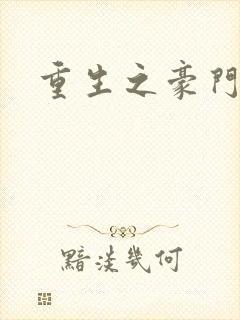 重生之豪門
黯淡幾何